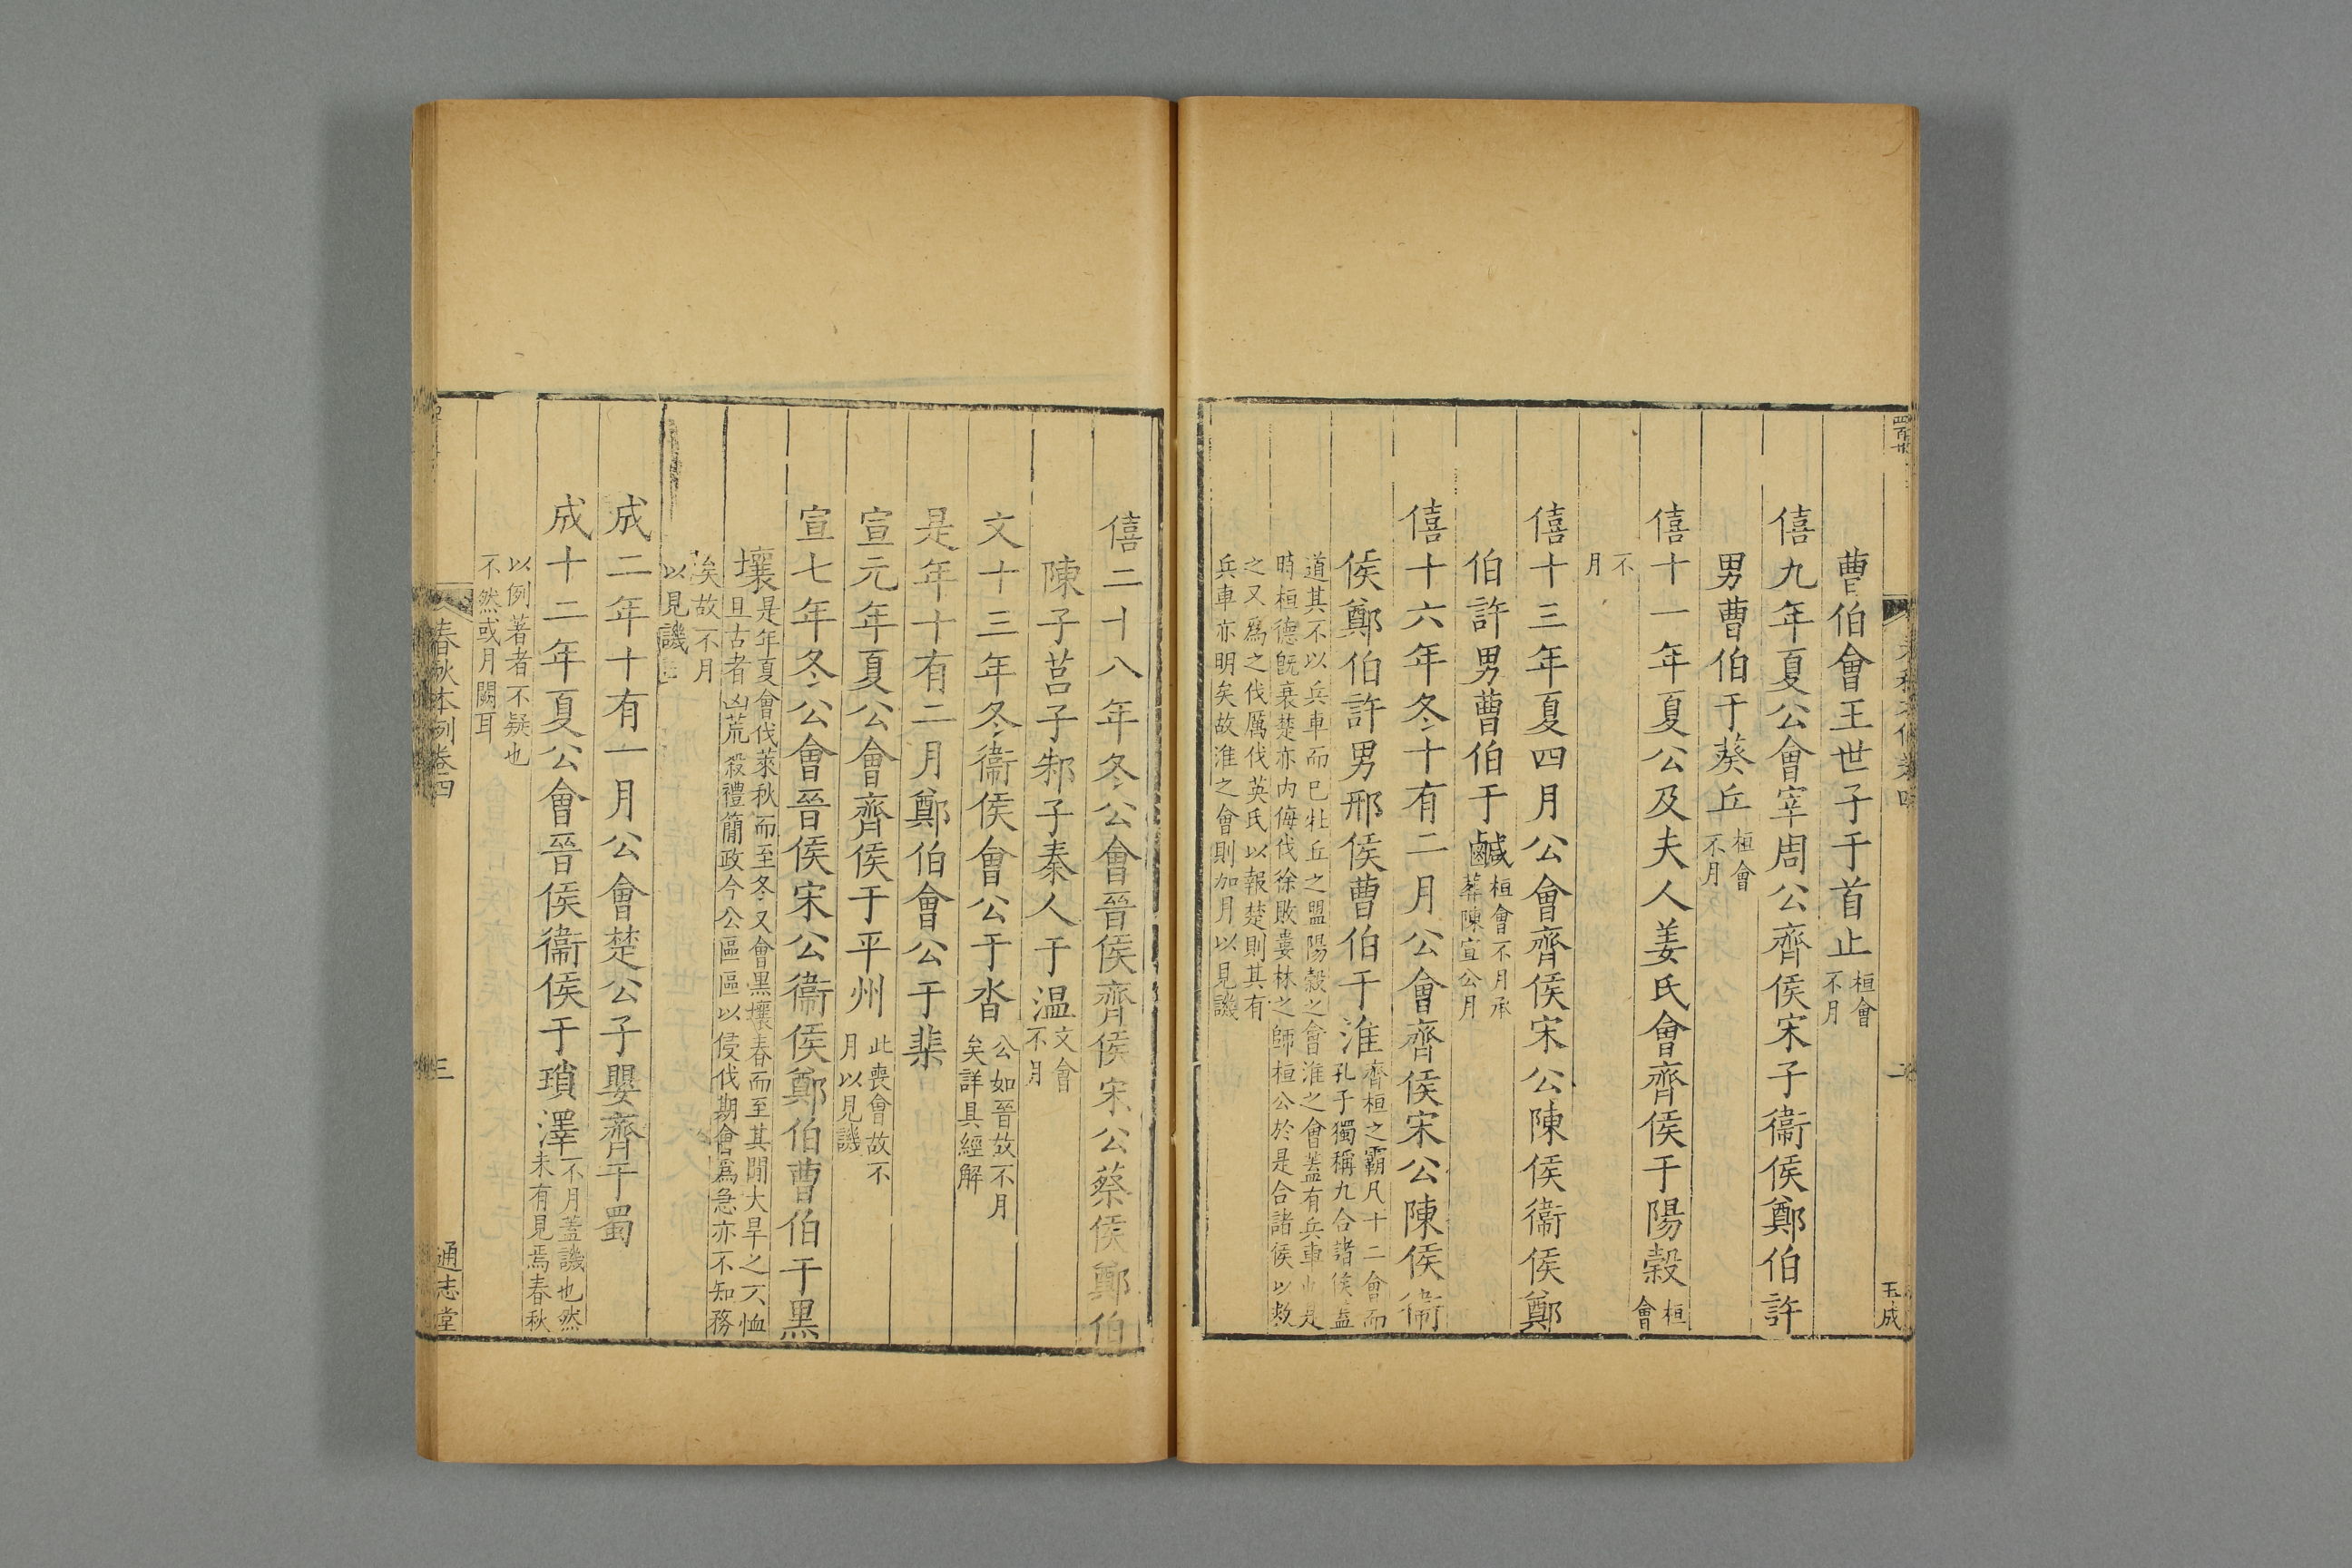 曹伯會王世子于首止桓會不月
僖九年夏公會宰周公齊侯宋子衞侯鄭伯許
男曹伯于葵丘桓會不月
僖十一年夏公及夫人姜氏會齊侯于陽穀桓會
不月
僖十三年夏四月公會齊侯宋公陳侯衞侯鄭
伯許男曹伯于鹹桓會不月承葬陳宣公月
僖十六年冬十有二月公會齊侯宋公陳侯衞
侯鄭伯許男邢侯曹伯于淮齊桓之霸凡十二會而孔子獨稱九合諸侯蓋
道其不以兵車而已牡丘之盟陽穀之會淮之會蓋有兵車也是
時桓德既衰楚亦內侮伐徐敗婁林之師桓公於是合諸侯以救
之又爲之伐厲伐英氏以報楚則其有
兵車亦明矣故淮之會則加月以見譏
玉成
僖二十八年冬公會晉侯齊侯宋公蔡侯鄭伯
陳子莒子邾子秦人于温文會不月
文十三年冬衞侯會公于沓公如晉故不月矣詳具經解
是年十有二月鄭伯會公于棐
宣元年夏公會齊侯于平州此喪會故不月以見譏
宣七年冬公會晉侯宋公衞侯鄭伯曹伯于黑
壤是年夏會伐萊秋而至冬又會黑壤春而至其閒大旱之不恤
且古者凶荒殺禮簡政今公區區以侵伐期會爲急亦不知務
矣故不月
以見譏
成二年十有一月公會楚公子嬰齊于蜀
成十二年夏公會晉侯衞侯于瑣澤不月蓋譏也然未有見焉春秋
以例著者不疑也
不然或月闕耳
春秋本例卷四
三
通志堂